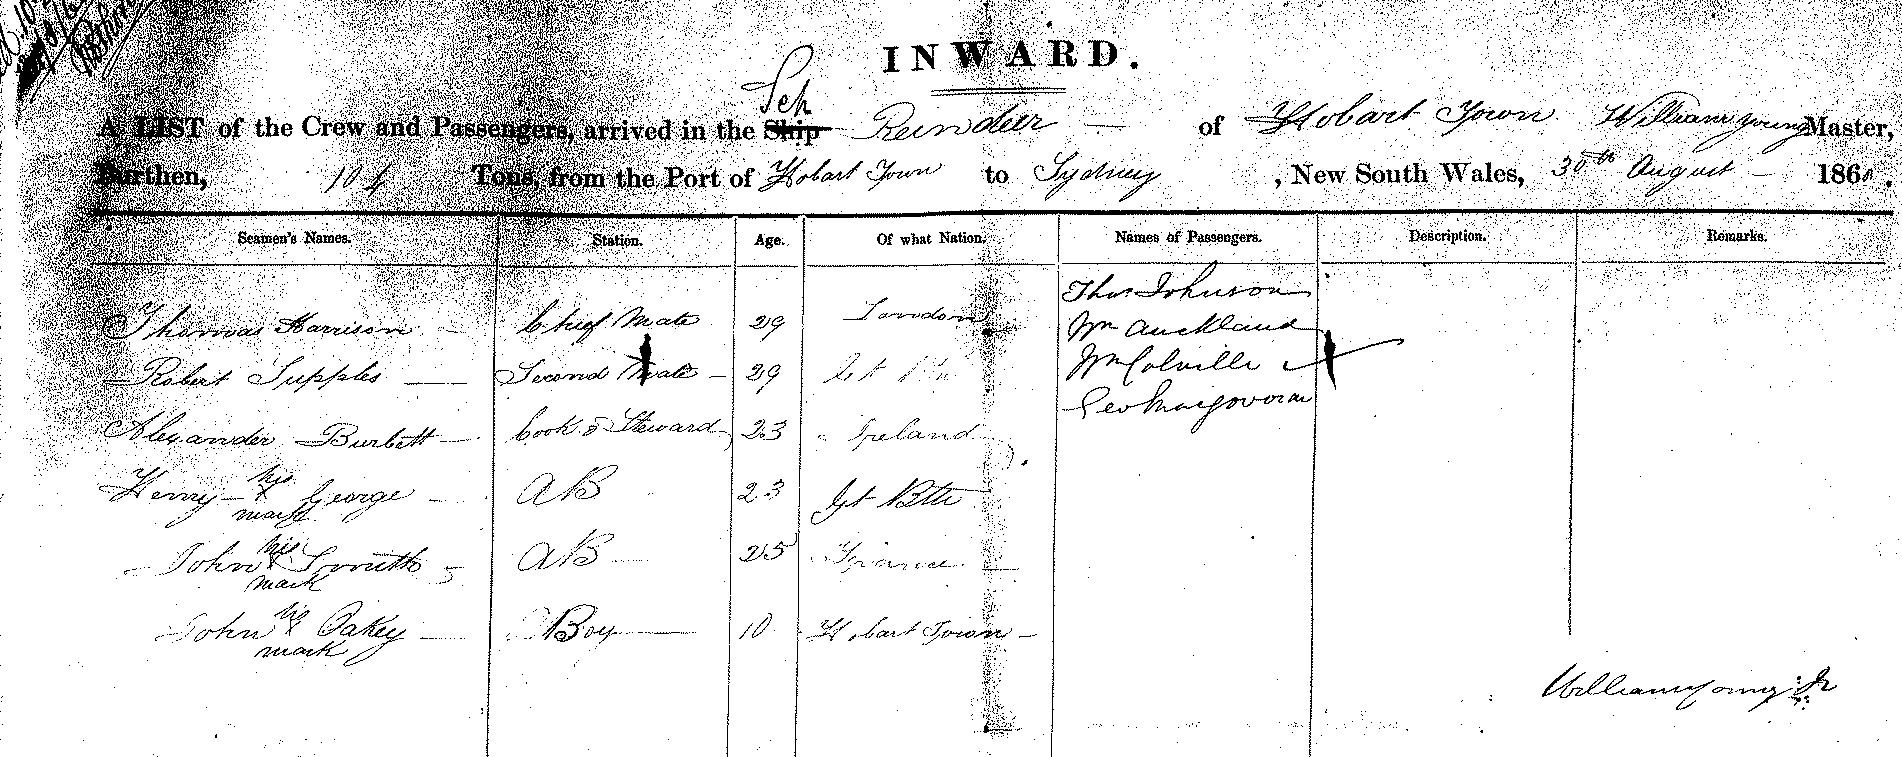 INWARD.
Sch
A LIST of the Crew and Passengers, arrived in the Ship Reindeer of Hobart Town William Young Master,
Burthen, 104 Tons, from the Port of Hobart Town to Sydney, New South Wales, 30th August 186
Seamen's Names. Station. Age. Of what Nation. Names of Passengers. Description. Remarks.
Thos Johnson
Thomas Harrison Chief Mate 29 London Wm Auckland
Robert Supples Second Mate 29 Wm Colville
Geo
Alexander Burbett Cook & Steward 23 Ireland
Henry his x mark George AB 23 Gt Btn
John his x mark Smith AB 25 France
John his x mark Oakey Boy 10 Hobart Town
William Young Jr